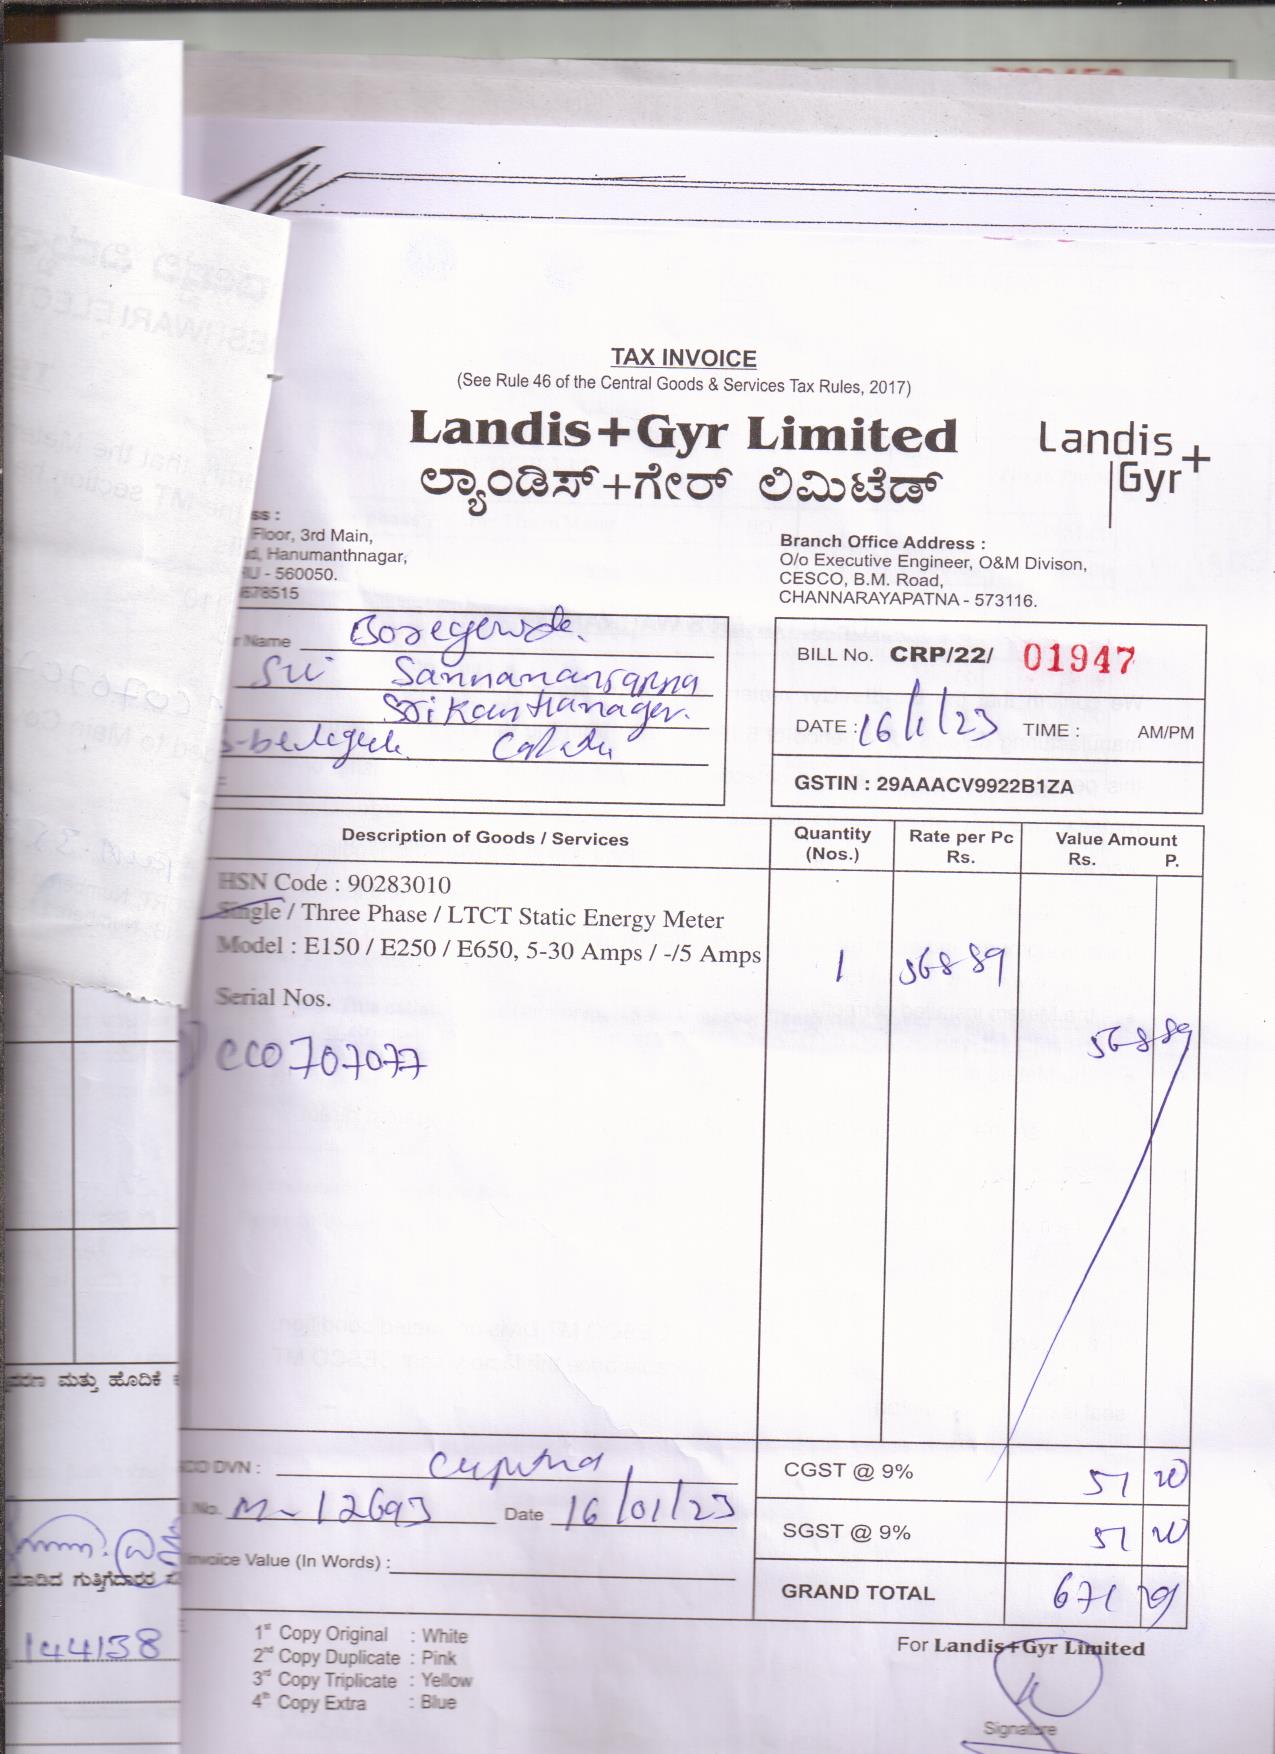 TAX INVOICE
(See Rule 46 of the Central Goods & Services Tax Rules, 2017)
Landis+Gyr Limited
ಲ್ಯಾಂಡಿಸ್+ಗೇರ್ ಲಿಮಿಟೆಡ್
Landis+
Gyr
ss :
Floor, 3rd Main,
Hanumanthnagar,
RU - 560050.
678515
Branch Office Address :
O/o Executive Engineer, O&M Divison,
CESCO, B.M. Road,
CHANNARAYAPATNA - 573116.
r Name Boregowda.
Sri
Srikantanagar.
BILL No. CRP/22/ 01947
DATE : 16/1/23 TIME : AM/PM
GSTIN : 29AAACV9922B1ZA
Description of Goods / Services Quantity (Nos.) Rate per Pc Rs. Value Amount Rs. P.
HSN Code : 90283010
Single / Three Phase / LTCT Static Energy Meter
Model : E150 / E250 / E650, 5-30 Amps / -/5 Amps
1 568 89
Serial Nos.
568 89
CC0707077
DVN :
No. M-12693 Date 16/01/23
Invoice Value (In Words) :
CGST @ 9% 51 20
SGST @ 9% 51 20
GRAND TOTAL 671 29
1st Copy Original : White
2nd Copy Duplicate : Pink
3rd Copy Triplicate : Yellow
4th Copy Extra : Blue
For Landis+Gyr Limited
Signature
ಮತ್ತು ಹೊದಿಕೆ
ಗುತ್ತಿಗೆದಾರರ
144138